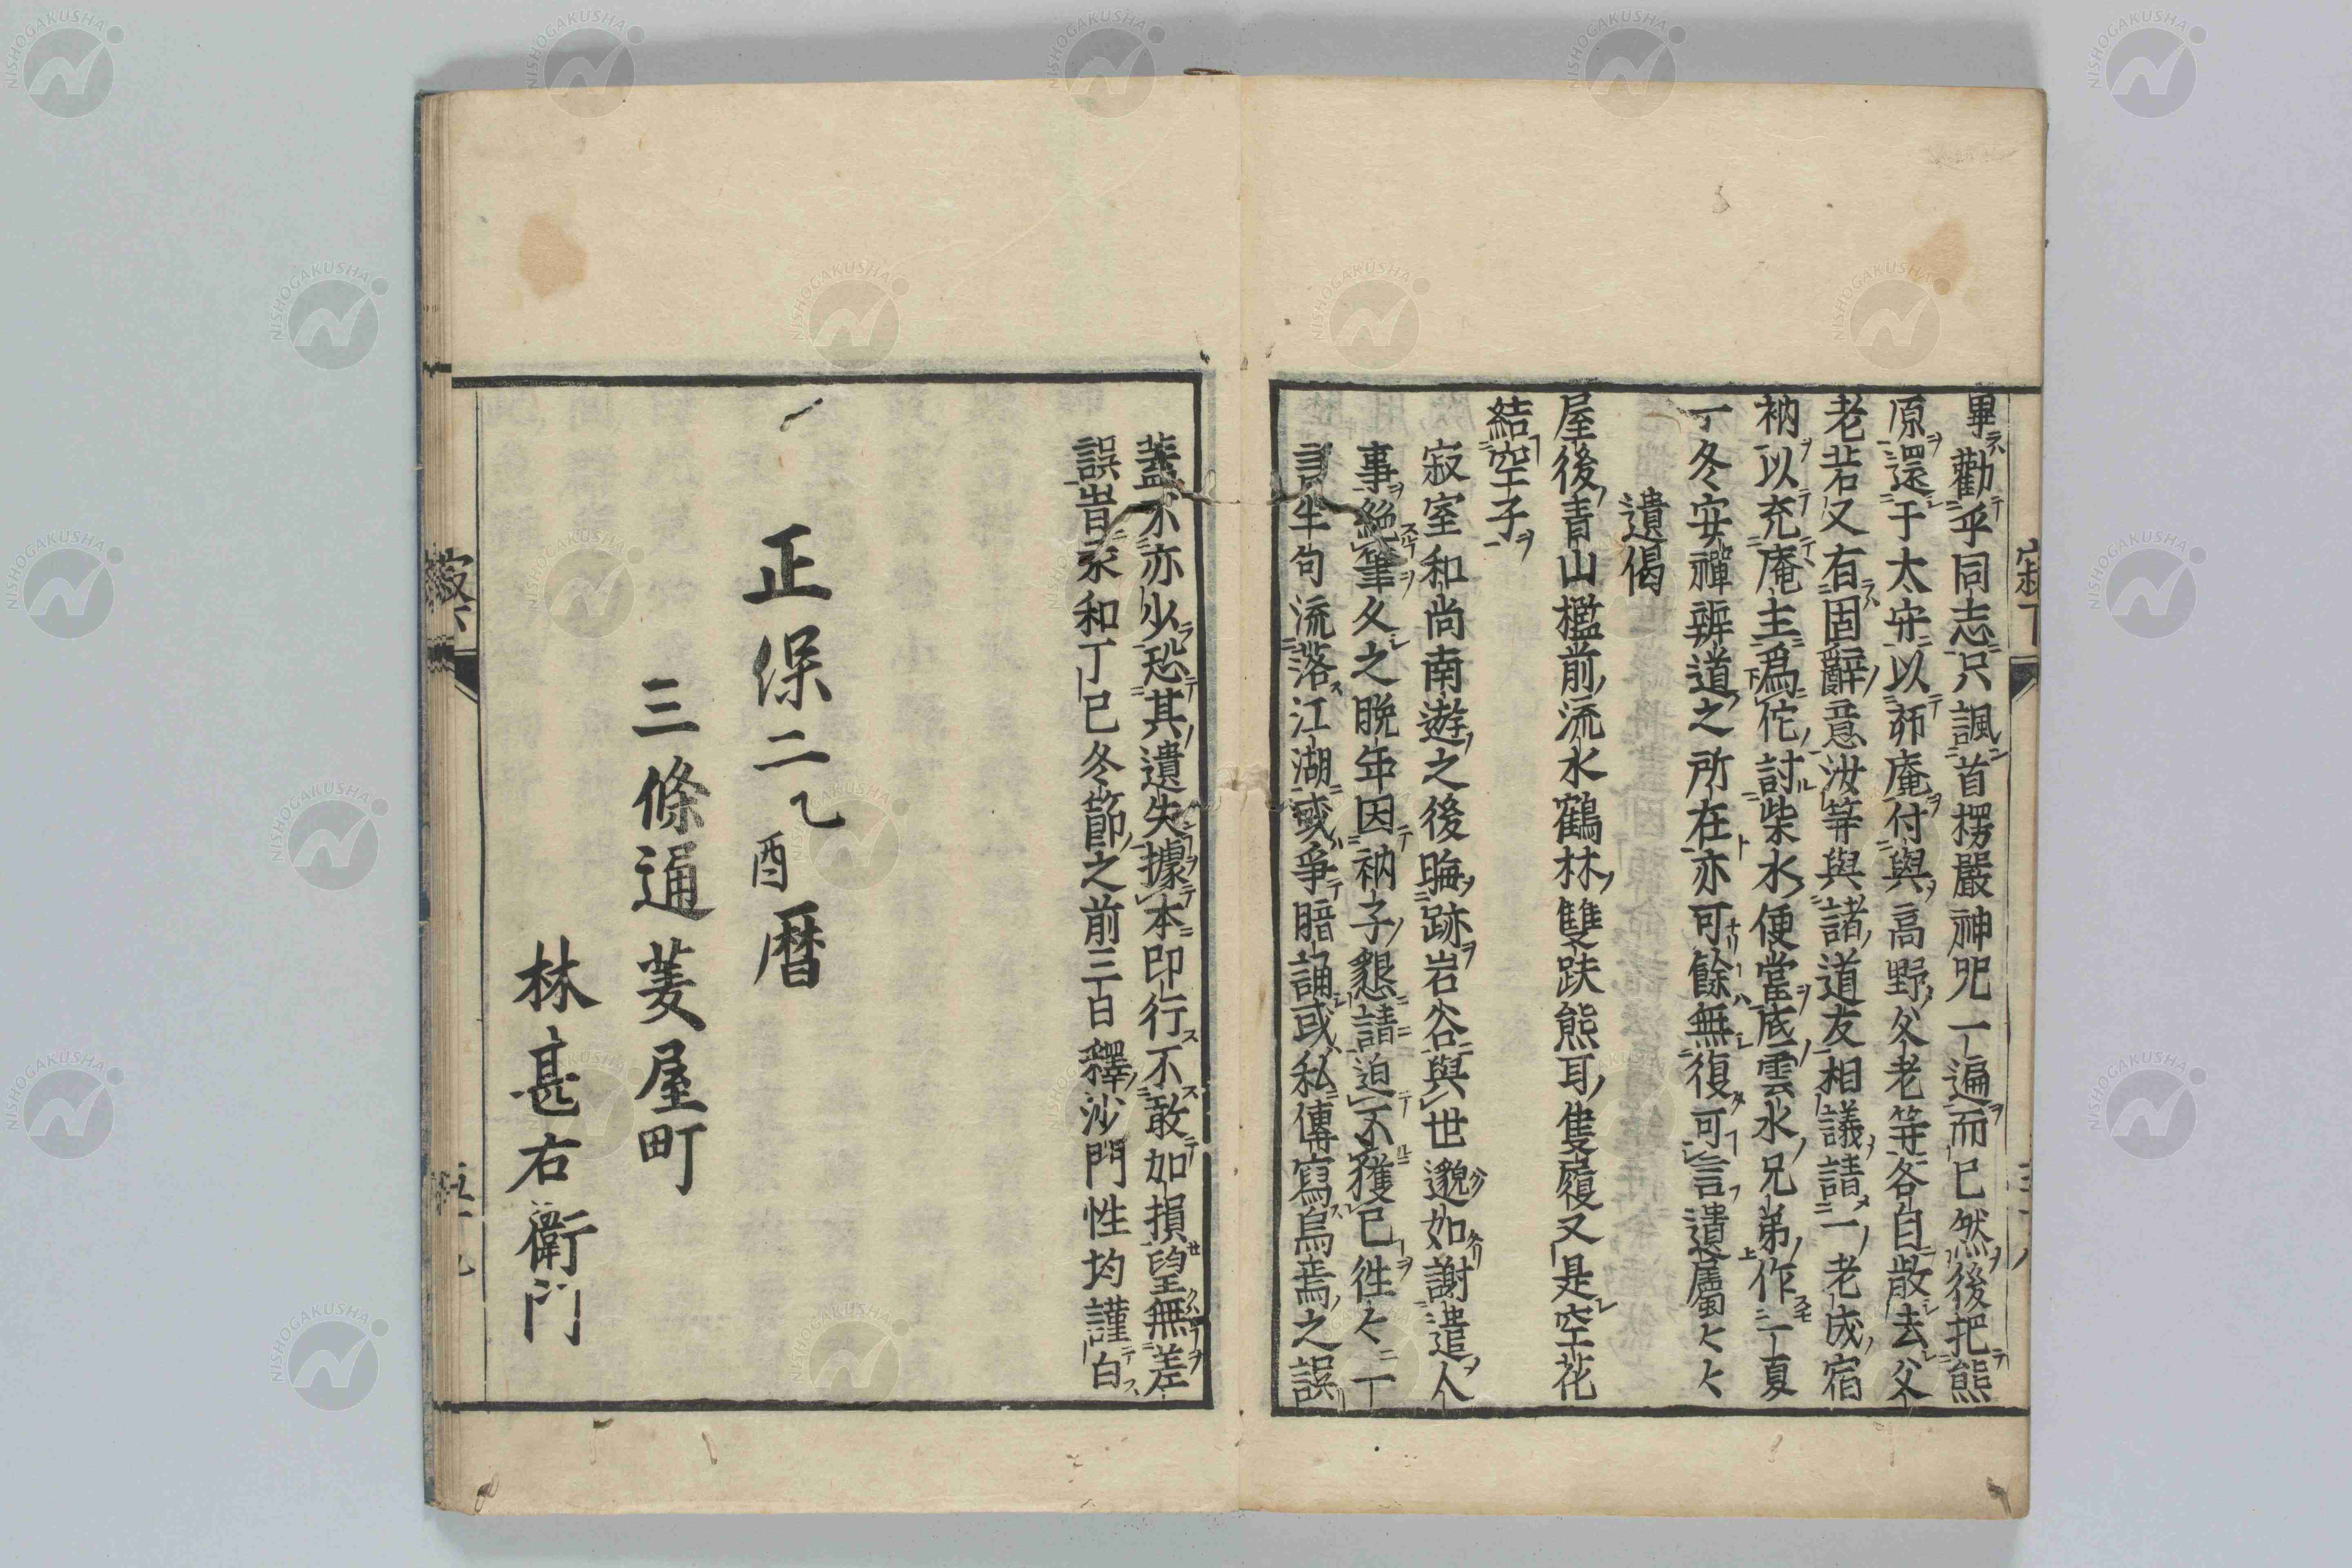 畢勸乎同志只諷首楞嚴神咒一遍而已然後把熊
原還于太守以茆庵付與高野父老等各自散去父
老若又有固辭意汝等與諸道友相議請一老成宿
衲以充庵主爲佗討柴水便當底雲水兄弟作一夏
一冬安禪辨道之所在亦可餘無復可言遺屬々々
遺偈
屋後青山檻前流水鶴林雙趺熊耳隻履又是空花
結空子
寂室和尚南遊之後晦跡岩谷與世邈如謝遣人
事絶筆久之晩年因衲子懇請迫不獲已徃々一
言半句流落江湖或爭暗誦或私傳寫烏焉之誤
蓋不亦少恐其遺失據本印行不敢加損望無差
誤旹永和丁巳冬節之前三日釋沙門性均謹白
正保二乙酉暦
三條通菱屋町
林甚右衛門
寂下
寂下
NISHOGAKUSHA